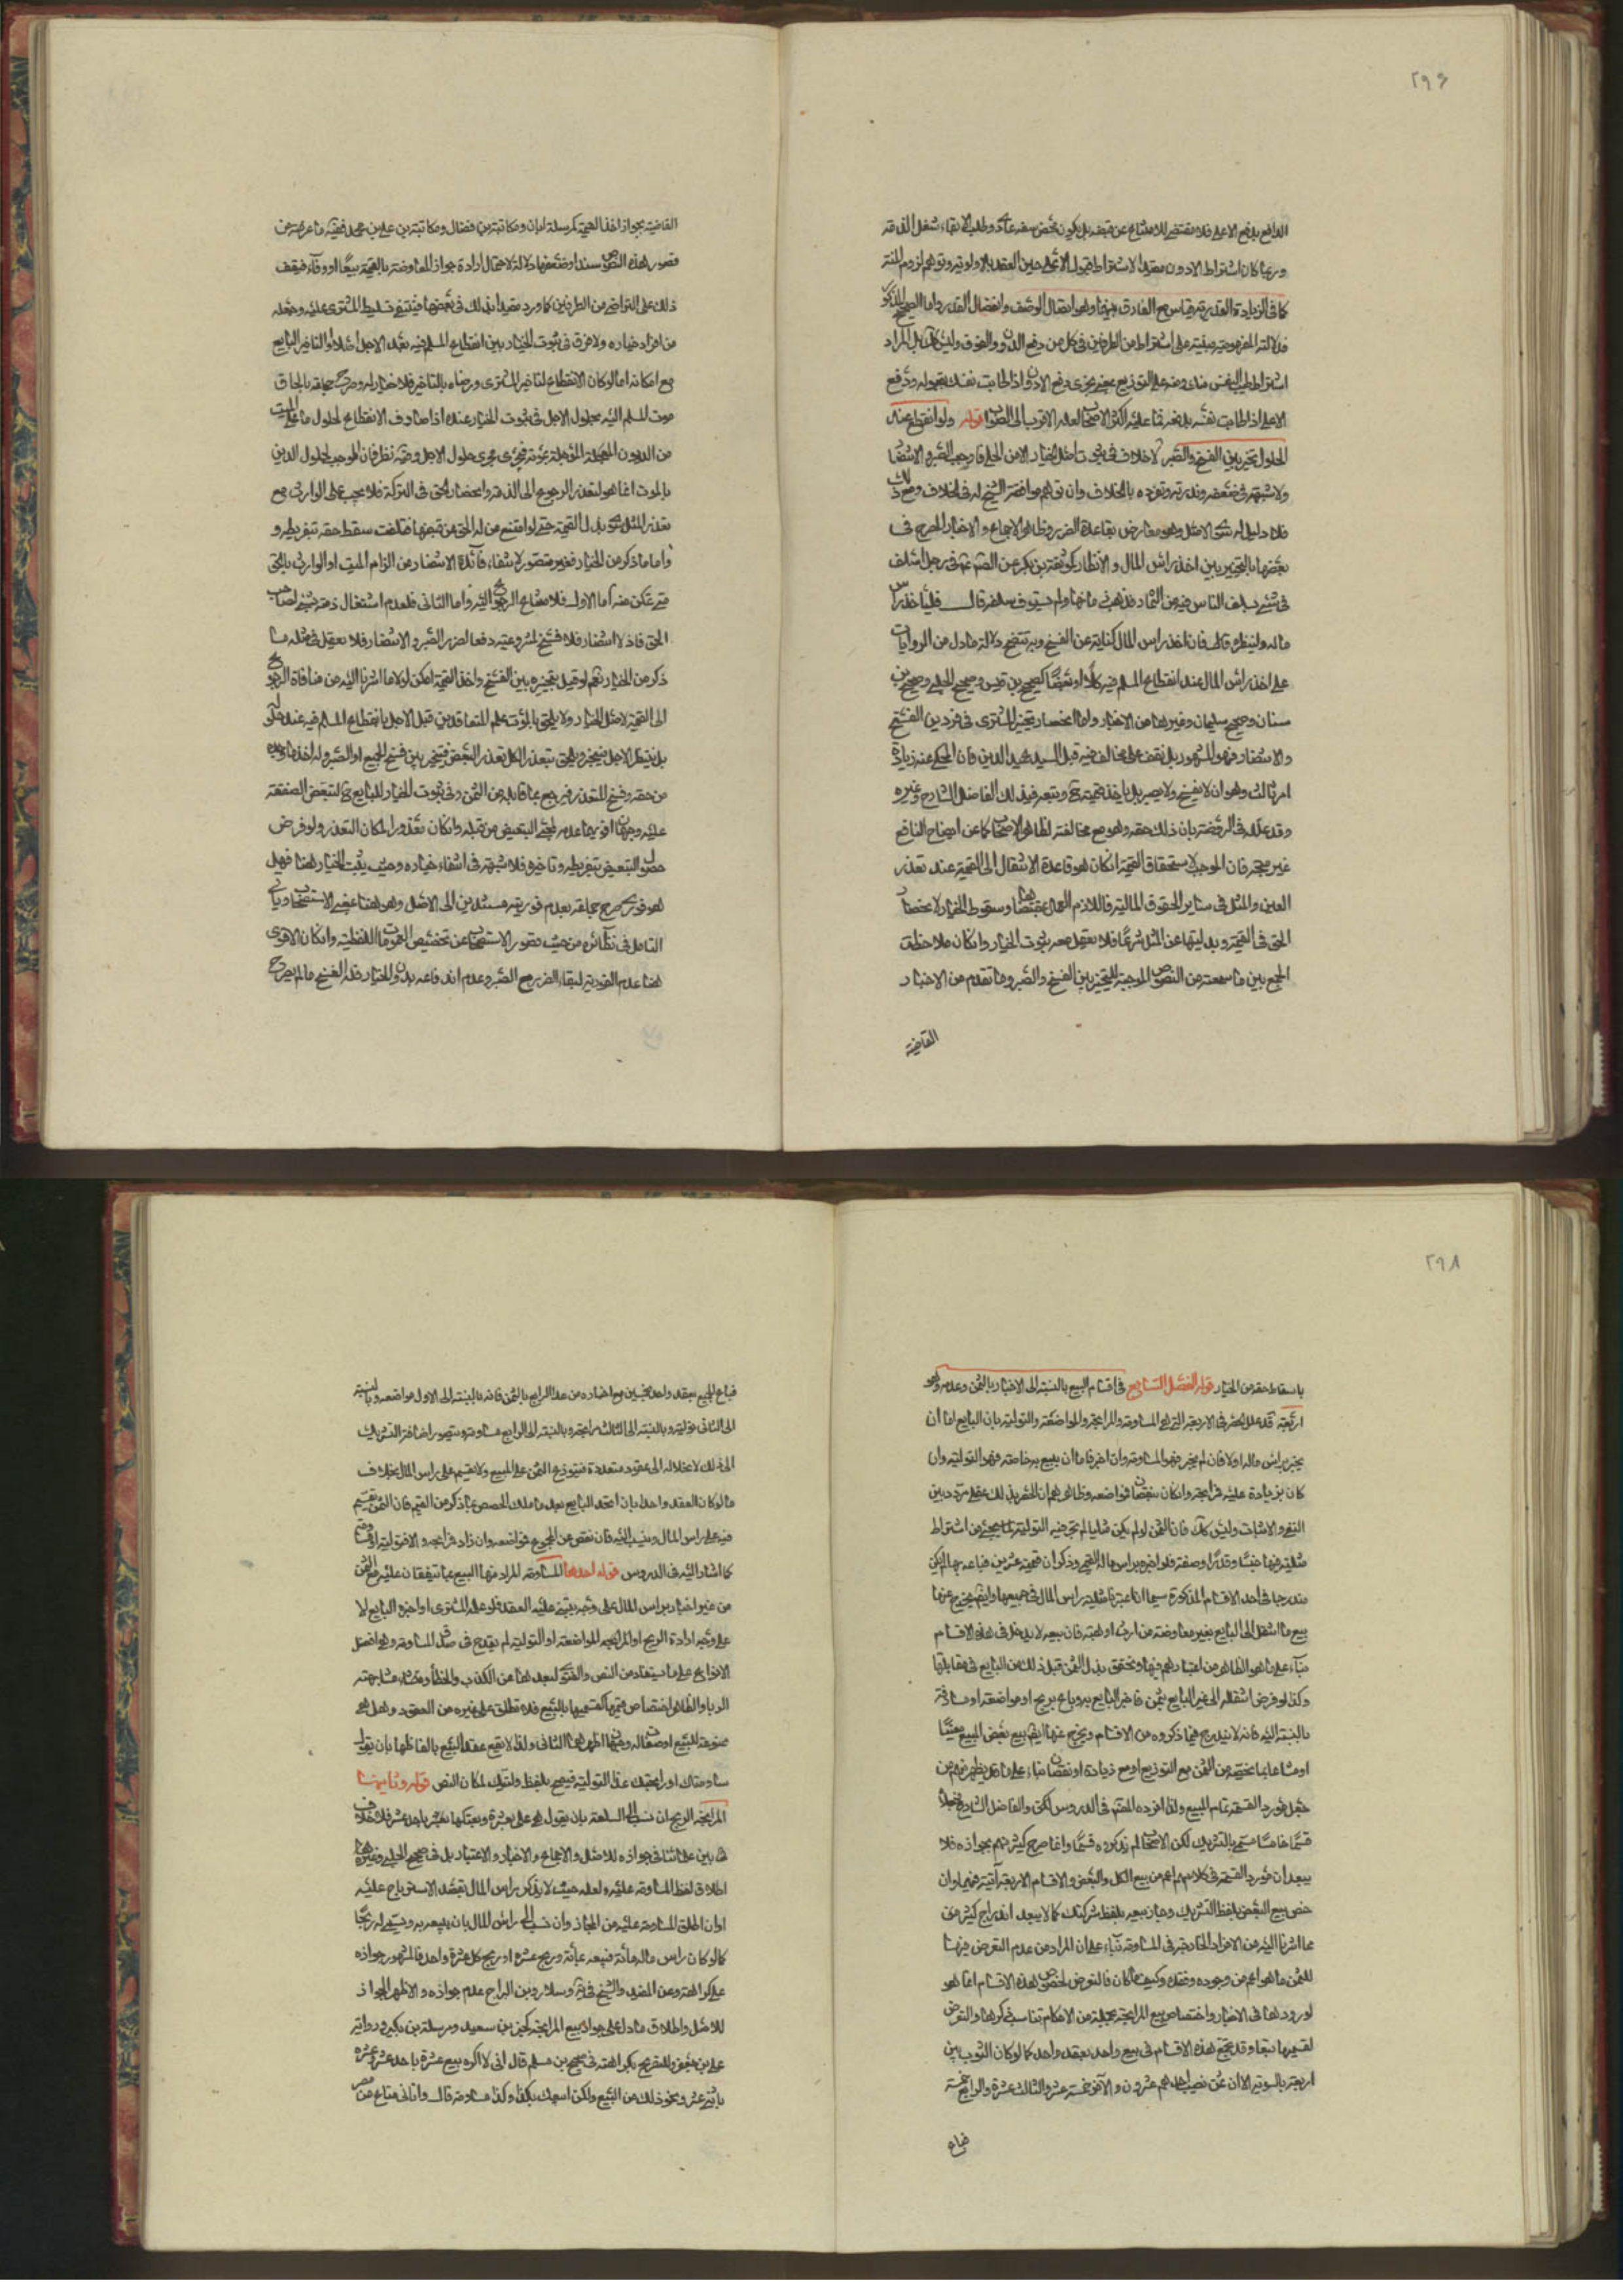 ٢٩٦
الدافع بدفع الاعلى فلا مقتضى للامتناع عن قبضه بل يكون محض سفه وطلب لابقاء شغل الذمة
وربما كان اشتراط الادون مقصد الاشتراط قبول الاعلى حين العقد بالاولوية وتوهم لزوم المنة
كما فى الزيادة القدرية قياس مع الفارق بينهما وهو اتصال الوصف وانفصال القدر واما الصحيح المذكور
فدلالته المفهومية مبنية على اشتراط من الطرفين فى كل من دفع الدون والفوق وليس كك بل المراد
اشتراط طيب النفس منك ومنه على التوزيع بمعنى يجزى دفع الادون اذا طابت نفسك بقبوله ودفع
الاعلى اذا طابت نفسه بدفعه فما عليه اكثر الاصحاب لعله الاقرب الى الصواب قوله ولو انقطع عند
الحلول تخير بين الفسخ والصبر لا خلاف فى ثبوت اصل الخيار الا من الحلى فاوجب الصبر والانتظار
ولا شبهة فى ضعفه وندرته وتفرده بالخلاف وان توهم موافقة الشيخ له فى الخلاف ومع ذلك
فلا دليل له سوى الاصل وهو معارض بقاعدة الضرر وظاهر الاجماع والاخبار المصرح فى
بعضها بالتخيير بين اخذ راس المال والانظار كموثقة بن بكير عن الصادق فى رجل اسلف
فى شئ يسلف الناس فيه من الثمار فذهب ثمارها ولم يستوف سلفه قال فلياخذ راس
ماله او لينظره فان اخذ راس المال كناية عن الفسخ وبه يتضح دلالة ما دل من الروايات
على اخذ راس المال عند انقطاع المسلم فيه كلا او بعضا كصحيح بن قيس وصحيح الحلبى وصحيح بن
سنان وصحيح سليمان وغيرها من الاخبار واما انحصار تخيير المشترى فى فردين الفسخ
والانتظار فهو المشهور بل لم نقف على مخالف فيه قبل السيد عميد الدين فان المحكى عنه زيادة
امر ثالث وهو ان لا يفسخ ولا يصبر بل ياخذ قيمته وتبعه فى ذلك الفاضل الشارح وغيره
وقد علله فى الروضة بان ذلك حقه وهو مع مخالفته لظاهر الاصحاب كما عن ايضاح النافع
غير متجه فان الموجب لاستحقاق القيمة ان كان هو قاعدة الانتقال الى القيمة عند تعذر
العين والمثل فى ساير الحقوق المالية فاللازم العمل بمقتضاها وسقوط الخيار لانحصار
الحق فى القيمة وبدليتها عن المثل شرعا فلا يعقل معه ثبوت الخيار وان كان ملاحظة
الجمع بين ما سمعته من النصوص الموجبة للتخيير بين الفسخ والصبر وما تقدم من الاخبار
القاضية
القاضية بجواز اخذ القيمة كمرسلة ابان ومكاتبة بن فضال ومكاتبة بن على بن محمد ففيه ما عرفته من
قصور هذه النصوص سندا وضعفها دلالة لاحتمال ارادة جواز المعاوضة بالقيمة بيعا او وفاء فيقف
ذلك على التراضى من الطرفين كما ورد مقيدا بذلك فى بعضها فينتفى تسليط المشترى عليه وجعله
من افراد خياره ولا فرق فى ثبوت الخيار بين انقطاع المسلم فيه بعد الاجل اصلا او لتاخير البايع
مع امكانه اما لو كان الانقطاع لتاخير المشترى ورضاه بالتاخير فلا خيار له وصرح جماعة بالحاق
موت المسلم اليه بحلول الاجل فى ثبوت الخيار عنده اذا صادف الانقطاع لحلول ما على الميت
من الديون المؤجلة بموته فيجرى مجرى حلول الاجل وفيه نظر فان الموجب لحلول الدين
بالموت انما هو لتعذر الرجوع الى الذمة وانحصار الحق فى التركة فلا يجب على الوارث مع
تعذر المثل سوى بدل القيمة حتى لو امتنع من له الحق من قبضها فتلفت سقط حقه بتفريطه و
اما ما ذكر من الخيار فغير متصور لانتفاء فائدة الانتظار من الزام الميت او الوارث بالحق
متى تمكن منه اما الاول فلامتناع الرجوع اليه واما الثانى فلعدم اشتغال ذمته بشئ لصاحب
الحق فاذ لا انتظار فلا فسخ لمشروعيته دفعا لضرر الصبر والانتظار فلا يعقل فى مثله ما
ذكر من الخيار نعم لو قيل بتخييره بين الفسخ واخذ القيمة امكن لولا ما اشرنا اليه من منافاة الرجوع
الى القيمة لاصل الخيار ولا يلحق بالموت علم المتعاقدين قبل الاجل بانقطاع المسلم فيه عند حلوله
بل ينتظر الاجل فيتخير ويلحق بتعذر الكل تعذر البعض فيتخير بين فسخ الجميع او الصبر وله اخذ ما وجده
من حقه وفسخ المتعذر فيرجع بما قابله من الثمن وفى ثبوت الخيار للبايع ح لتبعض الصفقة
عليه وجهان اقويهما عدمه لمجئ التبعيض من قبله وان كان معذورا لمكان التعذر ولو فرض
حصول التبعيض بتفريطه وتاخيره فلا شبهة فى انتفاء خياره وحيث يثبت الخيار هنا فهل
هو فورى صرح جماعة بعدم فوريته مستندين الى الاصل وهو هنا بمعنى الاستصحاب وياتى
التامل فى نظائره من حيث قصور الاستصحاب عن تخصيص العمومات اللفظية وان كان الاقوى
هنا عدم الفورية لبقاء الضرر مع الصبر وعدم اندفاعه بدون الخيار فله الفسخ ما لم يصرح
٢٩٨
باسقاط حقه من الخيار قوله الفصل السابع فى اقسام البيع بالنسبة الى الاخبار بالثمن وعدمه وهو
اربعة قد علل الحصر فى الاربعة التى هى المساومة والمرابحة والمواضعة والتولية بان البايع اما ان
يخبر براس ماله اولا فان لم يخبر فهو المساومة وان اخبر فاما ان يبيع به خاصة فهو التولية وان
كان بزيادة عليه فمرابحة وان كان بنقصان فمواضعة وظاهرهم ان الحصر بذلك عقلى مردد بين
النفى والاثبات وليس كك فان الثمن لو لم يكن مثليا لم تجر فيه التولية لما يجئ من اشتراط
مثليته فيها جنسا وقدرا وصفة فلو اخبره براس ماله القيمى وذكر ان قيمته عشرين فباعه بها لم يكن
مندرجا فى احد الاقسام المذكورة سيما اذا اعتبرنا مثلية راس المال فى جميعها وايضا يخرج عنها
بيع ما انتقل الى البايع بغير معاوضة من ارث او هبة فان بيعه لا يدخل فى هذه الاقسام
بناء على ما هو الظاهر من اعتبارهم فيها تحقق بذل الثمن قبل ذلك من البايع فى مقابلتها
وكذا لو فرض انتقاله الى غير البايع بثمن فاخبر البايع به وباع بربح او مواضعة او مساوقة
بالنسبة اليه فانه لا يندرج فيما ذكروه من الاقسام ويخرج عنها ايضا بيع بعض المبيع معينا
او مشاعا بما يخصه من الثمن مع التوزيع او مع زيادة او نقصان بناء على ما قد يظهر منهم من
جعل مورد القسمة تمام المبيع ولذا افرده المصنف فى الدروس لكن والفاضل الشارح فجعلاه
قسما خامسا مسمى بالتشريك لكن الاصحاب لم يذكروه قسما وانما صرح كثير منهم بجوازه فلا
يبعد ان مورد القسمة فى كلامهم اعم من بيع الكل والبعض والاقسام الاربعة آتية فيهما وان
خص بيع البعض بلفظ التشريك وجاز بيعه بلفظ شركتك كما لا يبعد اندراج كثير من
ما اشرنا اليه من الافراد الخارجة فى المساومة بناء على ان المراد من عدم التعرض فيها
للثمن ما هو اعم من وجوده وفقده وكيف ما كان فالتعرض لخصوص هذه الاقسام انما هو
لورودها فى الاخبار واختصاص بيع المرابحة بجملة من الاحكام تناسب ذكرها والتعرض
لقسيمها تبعا وقد يجتمع هذه الاقسام فى بيع واحد بعقد واحد كما لو كان الثوب بين
اربعة بالسوية الا ان ثمن نصيب احدهم عشرون والآخر خمسة عشر والثالث عشرة والرابع خمسة
فباع
فباع الجميع بعقد واحد بخمسين مع اخباره من عدا الرابع بالثمن فانه بالنسبة الى الاول مواضعة وبالنسبة
الى الثانى تولية وبالنسبة الى الثالث مرابحة وبالنسبة الى الرابع مساومة ويتصور اضافة التشريك
الى ذلك لانحلاله الى عقود متعددة فيتوزع الثمن على المبيع ولا يقسم على راس المال بخلاف
ما لو كان العقد واحدا بان اتحد البايع بعد ما ملك الحصص بما ذكر من القيم فان الثمن يقسم
فيه على راس المال وينسب اليه فان نقص عن المجموع فمواضعة وان زاد فمرابحة والا فتولية
كما اشار اليه فى الدروس قوله احدها المساومة المراد منها البيع بما يتفقان عليه من الثمن
من غير اخبار براس المال على وجه يبتنى عليه العقد فلو علمه المشترى او اخبره البايع لا
على وجه ارادة الربح او المرابحة او المواضعة او التولية لم يقدح فى صدق المساومة وهى افضل
الانواع على ما يستفاد من النص والفتوى لبعدها عن الكذب والخطأ ومشابهته
الربا والظاهر اختصاص قسمها كقسيمها بالبيع فلا تطلق على غيره من العقود وهل هى
صنوف للبيع او صفات له وجهان اظهرهما الثانى ولذا لا يقع عقد البيع بالفاظها بان يقول
ساومتك او رابحتك عدا التولية فيصح بلفظ وليتك لمكان النص قوله وثانيها
المرابحة الربح ان نسب الى السلعة بان يقول هى على بعشرة وبعتكها بعشر باحد عشر فلا خلاف
بين علمائنا فى جوازه للاصل والاجماع والاخبار والاعتبار بل فى صحيح الحلبى وغيرها
اطلاق لفظ المساومة عليه ولعله حيث لا يذكر راس المال بقصد الاسترباح عليه
او ان اطلق المساومة عليه من المجاز وان نسب الى راس المال بان يبيعه به ويسمى له ربحا
كما لو كان راس ماله مائة فيبيعه بمائة وربح عشرة او ربح كل عشرة واحد فالمشهور جوازه
على كراهة وعن المفيد والشيخ فى ية وسلار وبن البراج عدم جوازه والاظهر الجواز
للاصل واطلاق ما دل على جواز بيع المرابحة كخبر بن سعيد ومرسلة بن بكير ورواية
على بن جعفر وللتصريح بكراهته فى صحيح بن مسلم قال انى لا اكره بيع عشرة باحد عشر وعشرة
باثنى عشر ونحو ذلك من البيع ولكن ابيعك بكذا وكذا مساومة قال واتانى متاع من مصر